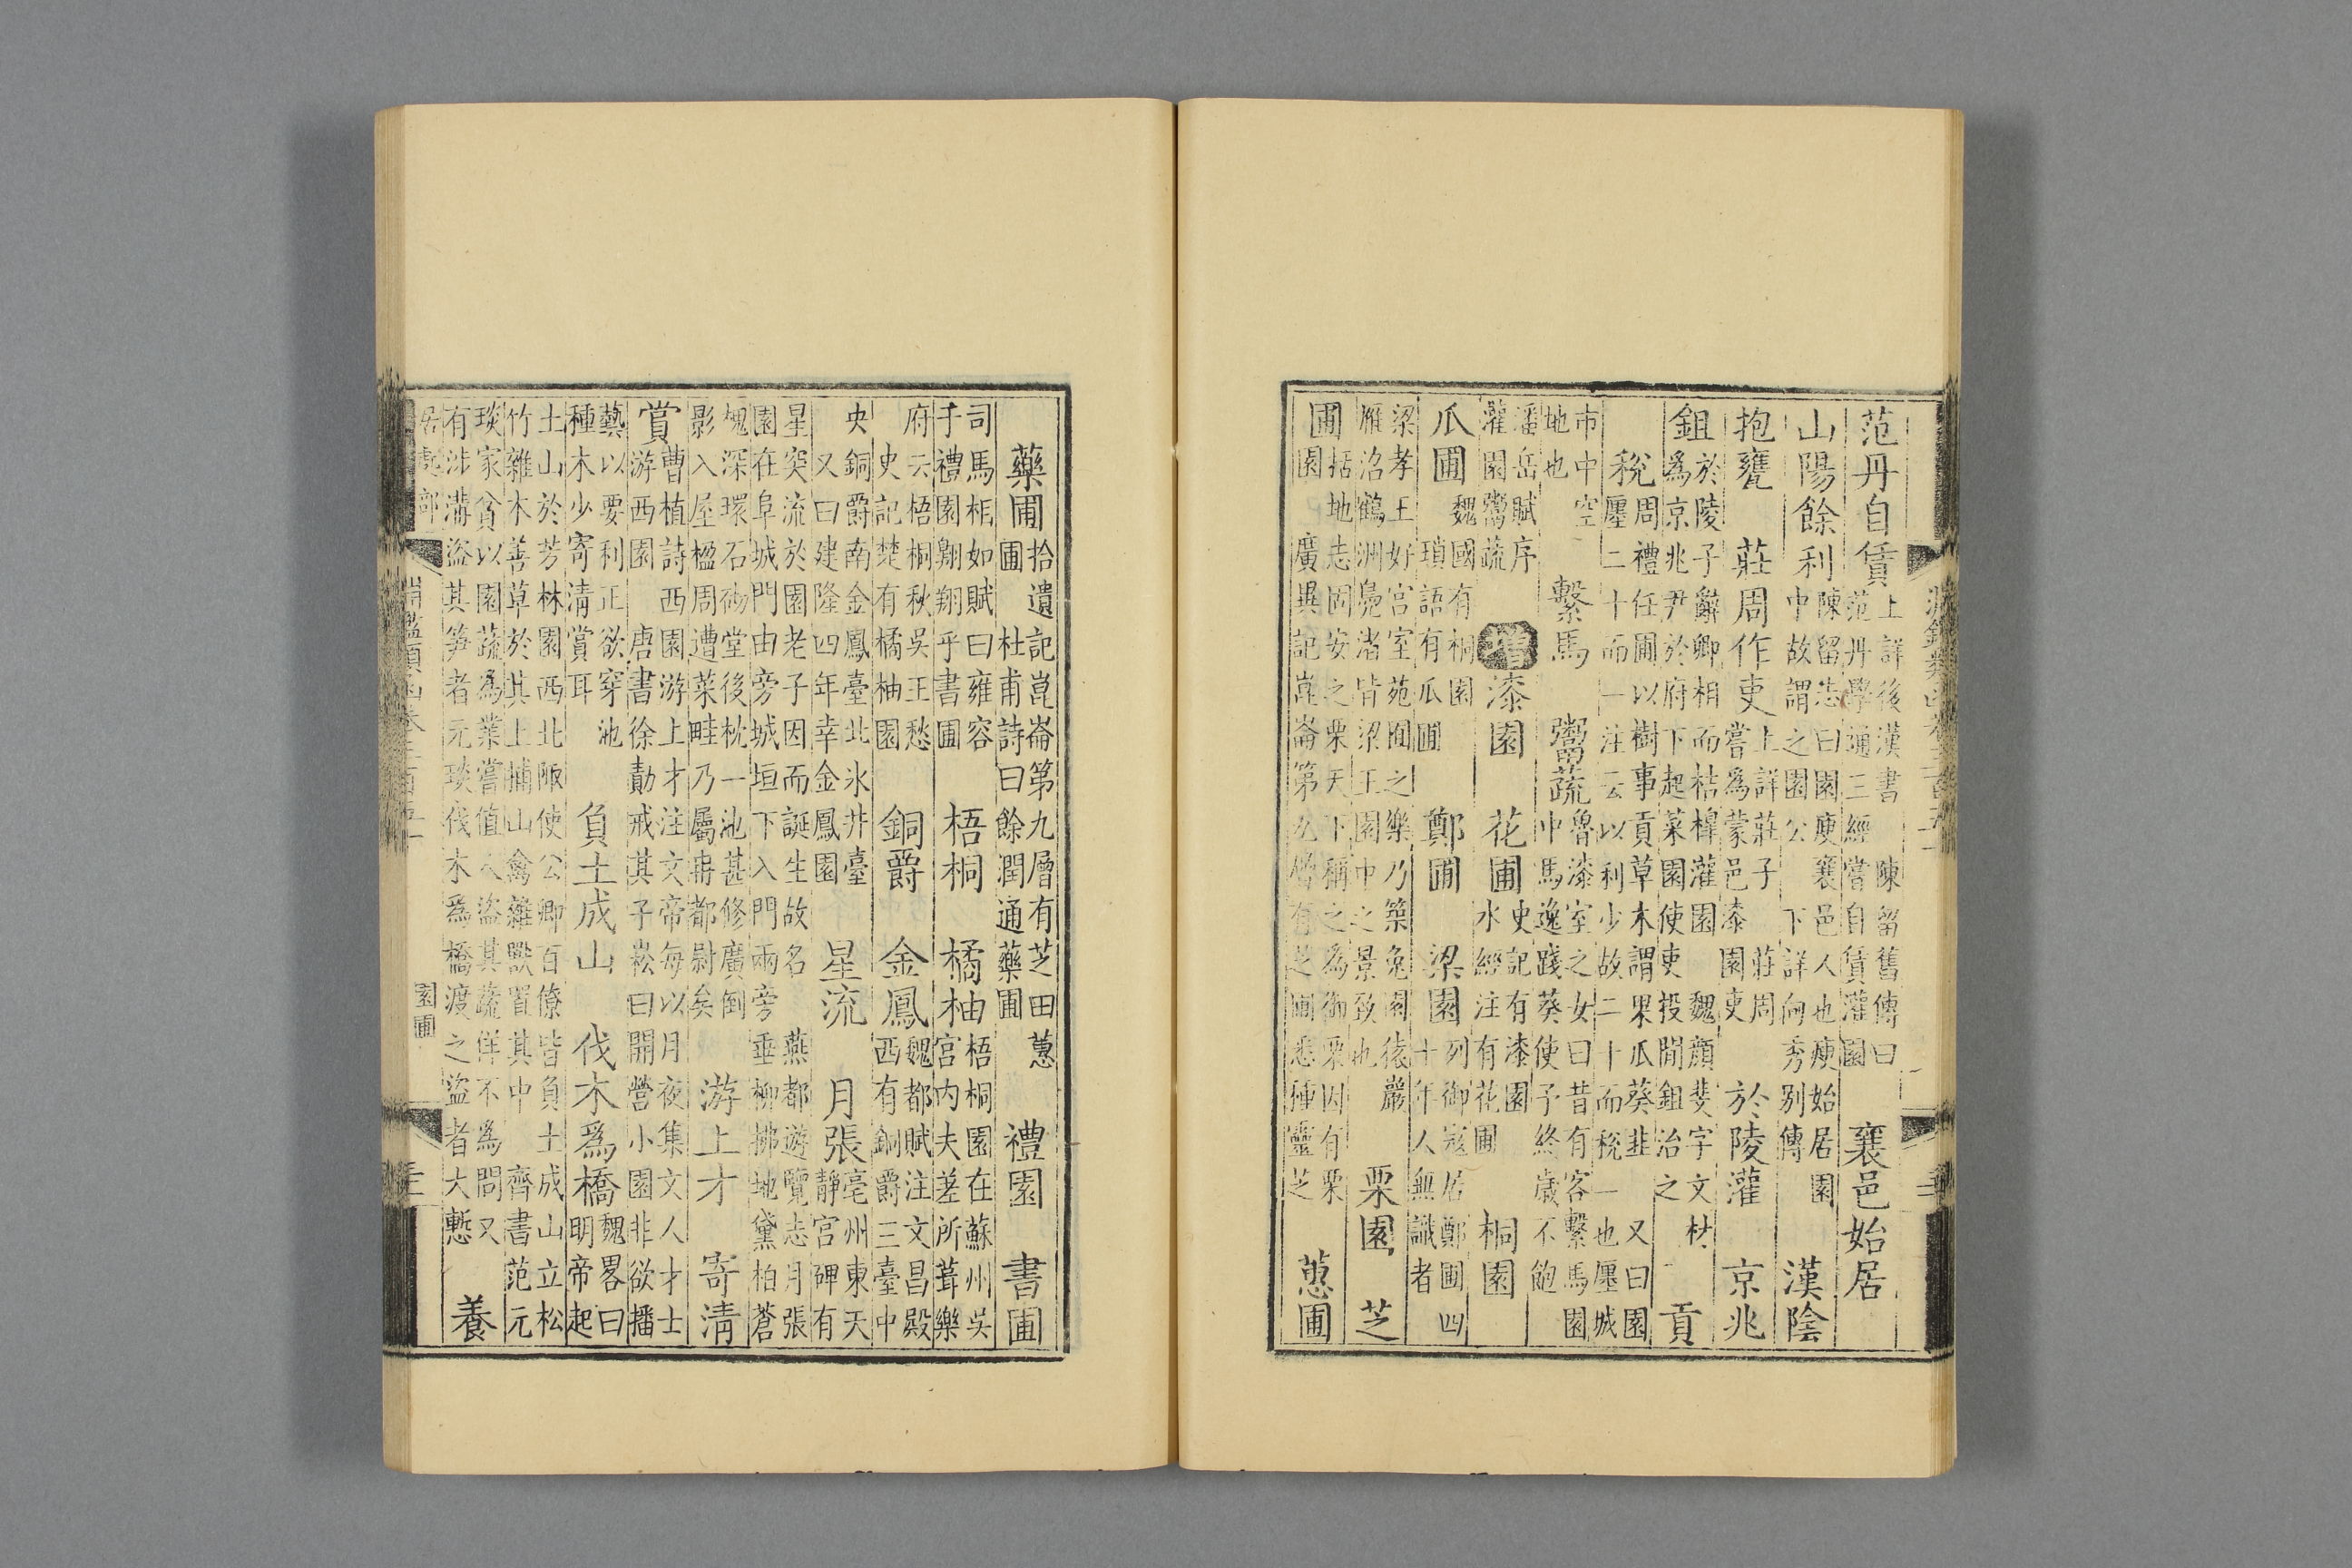 范丹自賃上詳後漢書 陳留舊傳曰
范丹學通三經嘗自賃灌園
襄邑始居
山陽餘利陳留志曰園庾襄邑人也瘐始居園
中故謂之園公 下詳向秀別傳
漢陰
抱甕 莊周作吏上詳莊子 莊周
嘗爲蒙邑漆園吏
於陵灌 京兆
鉏於陵子辭卿相而桔橰灌園 魏顏斐字文林
爲京兆尹於府下起菜園使吏投閒鉏治之
貢
稅周禮任圃以樹事貢草木謂果瓜葵韭 又曰園
廛二十而一注云以利少故二十而稅一也廛城
市中空
地也
繫馬 鬻蔬魯漆室之女曰昔有客繫馬園
中馬逸踐葵使予終歲不飽
潘岳賦序
灌園鬻蔬
增 漆園 花圃史記有漆園
水經注有花圃
桐園
瓜圃魏國有桐園
瑣語有瓜圃
鄭圃 梁園列御寇居鄭圃四
十年人無識者
梁孝王好宮室苑囿之樂乃築兔園 猿巖
雁沼鶴洲鳧渚皆梁王園中之景致也
栗園 芝
圃括地志固安之栗天下稱之爲御栗因有栗
園 廣異記崑崙第九層有芝圃悉種靈芝
蔥圃
藥圃拾遺記崑崙第九層有芝田蕙
圃 杜甫詩曰餘潤通藥圃
禮園 書圃
司馬相如賦曰雍容
手禮園翱翔乎書圃
梧桐 橘柚梧桐園在蘇州吳
宮內夫差所葺樂
府云梧桐秋吳王愁
史記楚有橘柚園
銅爵 金鳳魏都賦注文昌殿
西有銅爵三臺中
央銅爵南金鳳臺北氷井臺
又曰建隆四年幸金鳳園
星流 月張亳州東天
靜宮碑有
星突流於園老子因而誕生故名 燕都遊覽志月張
園在阜城門由旁城垣下入門兩旁垂柳拂地黛柏蒼
槐深環石砌堂後枕一池甚修廣倒
影入屋楹周遭菜畦乃屬冉都尉矣
游上才 寄清
賞曹植詩西園游上才注文帝每以月夜集文人才士
游西園 唐書徐勣戒其子崧曰開營小園非欲播
藝以要利正欲穿池
種木少寄清賞耳
負土成山 伐木爲橋魏畧曰
明帝起
土山於芳林園西北陬使公卿百僚皆負土成山立松
竹雜木善草於其上捕山禽雜獸置其中 齊書范元
琰家貧以園蔬爲業嘗值人盜其蔬佯不爲問又
有涉溝盜其筍者元琰伐木爲橋渡之盜者大慙
養
園圃